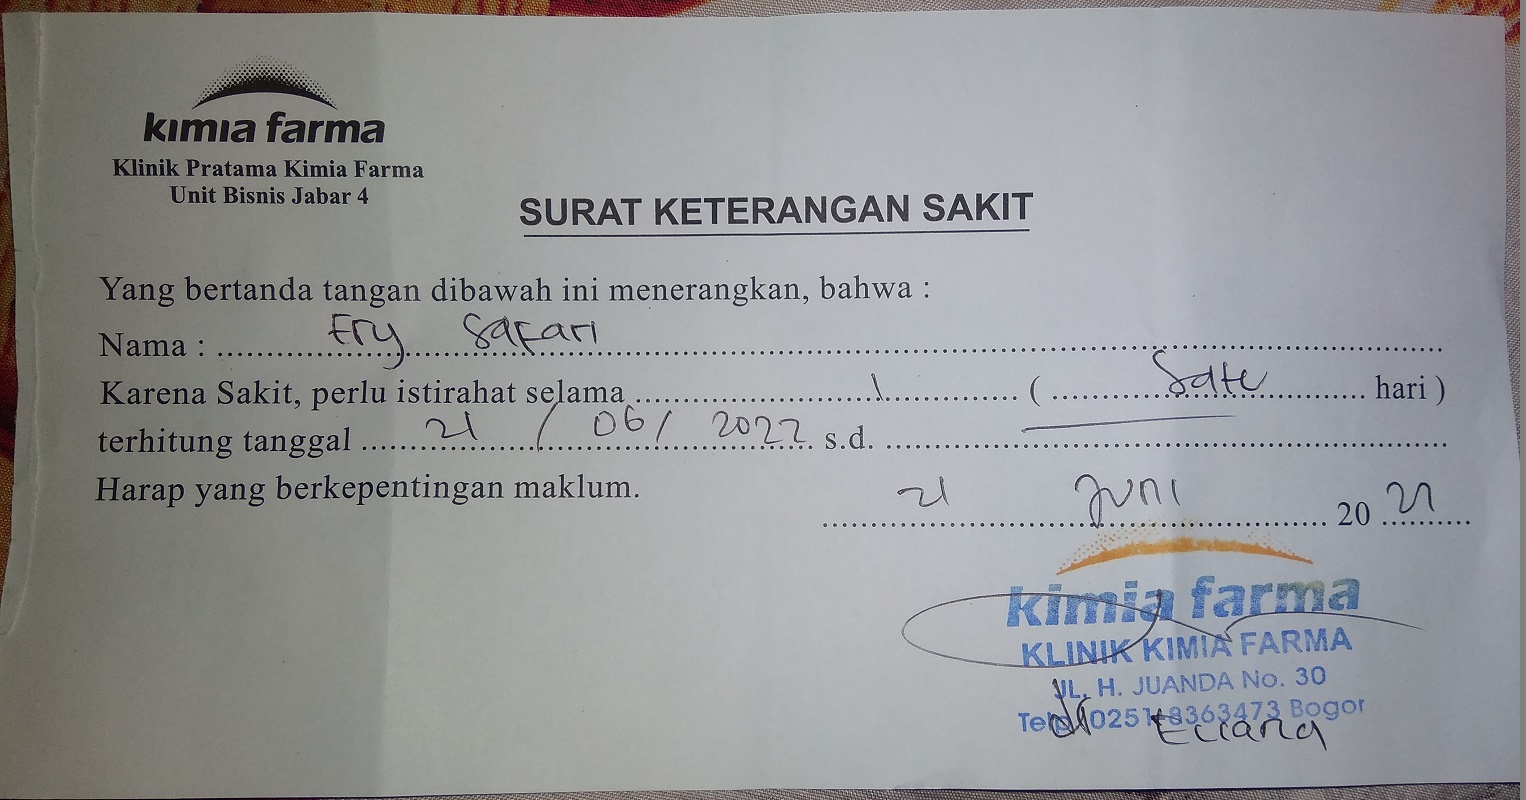 kimia farma
Klinik Pratama Kimia Farma
Unit Bisnis Jabar 4
SURAT KETERANGAN SAKIT
Yang bertanda tangan dibawah ini menerangkan, bahwa :
Nama : Ery Safari
Karena Sakit, perlu istirahat selama 1 ( Satu hari )
terhitung tanggal 21 / 06 / 2022 s.d.
Harap yang berkepentingan maklum.
21 Juni 20 22
kimia farma
KLINIK KIMIA FARMA
JL. H. JUANDA No. 30
Telp. (0251) 8363473 Bogor
dr